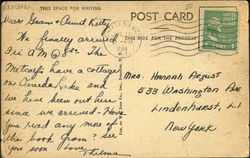 THIS SPACE FOR WRITING
POST CARD
THIS SIDE FOR THE ADDRESS
Dear Gram + Aunt Kitty
We finally arrived
Fri a.m @ 8:00. The
Metcalfs have a cottage
on Oneida Lake and
we have been out here
since we arrived. Have
you read any more of
the book Gram? See
you soon Love
Thelma
Mrs. Hannah August
533 Washington Ave
Lindenhurst, L.I
New York